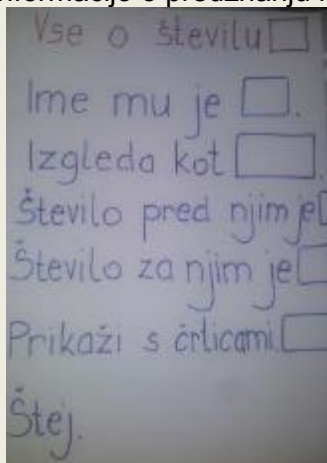 Vse o številu
Ime mu je .
Izgleda kot .
Število pred njim je
Število za njim je
Prikaži s črticami.
Štej.